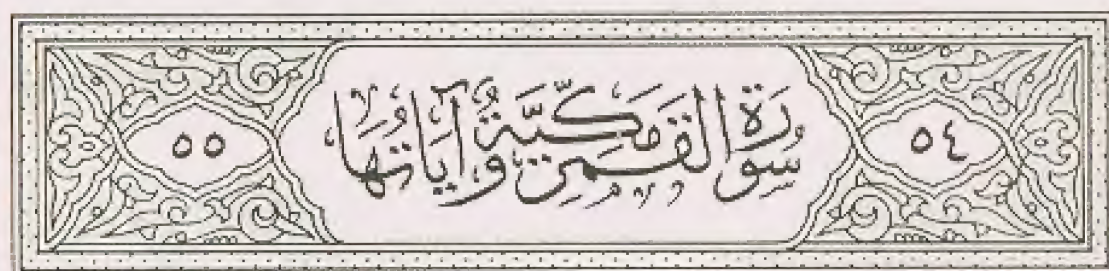 ٥٤ سُورَةُ القَمَرِ مَكِّيَّة وَآيَاتُهَا ٥٥